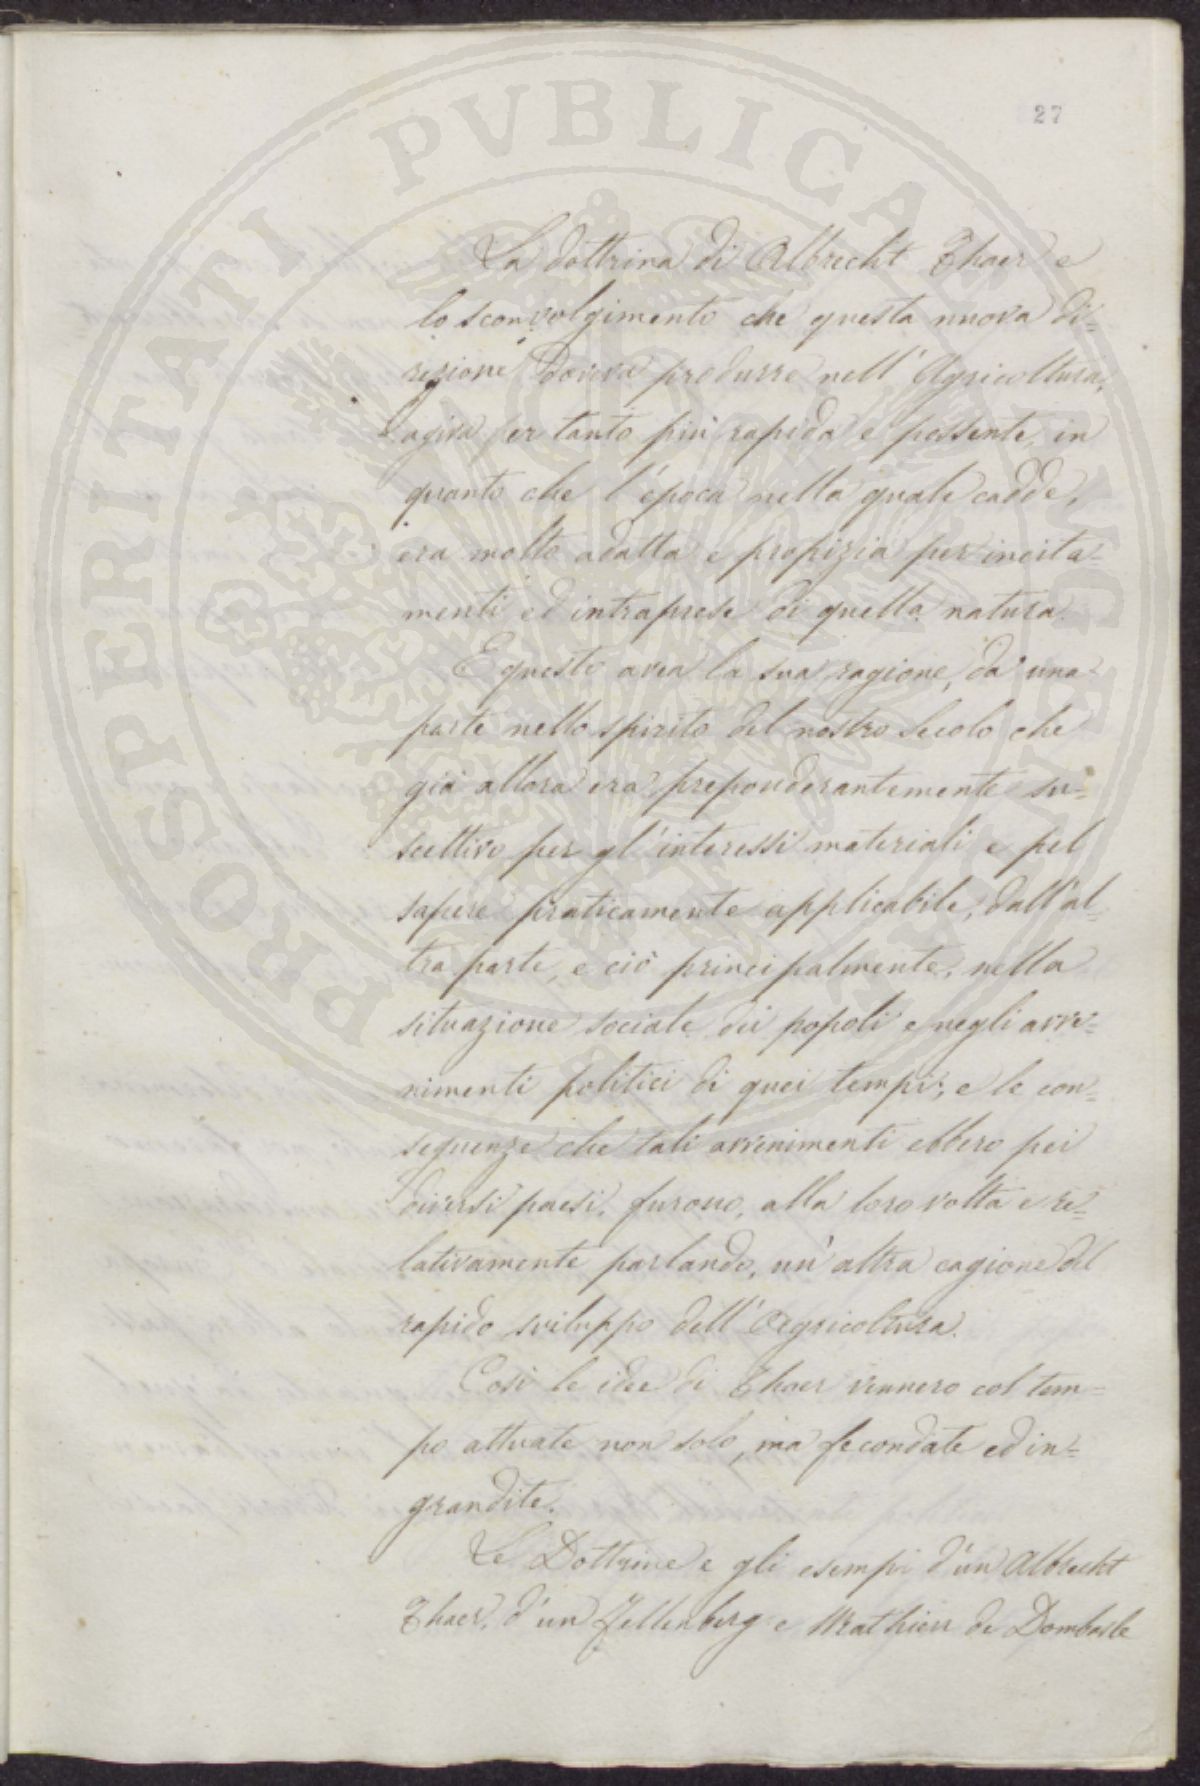 27
La dottrina di Albrecht Thaer e
lo sconvolgimento che questa nuova di=
rezione doveva produrre nell' Agricoltura,
agiva per tanto più rapida e possente, in
quanto che l'época nella quale cadde,
era molto adatta e propizia per incita=
menti ed intraprese di quella natura.
E questo avea la sua ragione, da una
parte nello spirito del nostro secolo che
già allora era preponderantemente su=
scettivo per gl'interessi materiali e pel
sapere praticamente applicabile, dall'al=
tra parte, e ciò principalmente, nella
situazione sociale dei popoli e negli avve=
nimenti politici di quei tempi; e le con=
seguenze che tali avvenimenti ebbero pei
diversi paesi, furono, alla loro volta e re=
lativamente parlando, un'altra cagione del
rapido sviluppo dell'Agricoltura.
Così le idee di Thaer vennero col tem=
po attuate non solo, ma fecondate ed in=
grandite.
Le Dottrine e gli esempi d'un Albrecht
Thaer, d'un Fellenberg e Mathieu de Dombasle
PROSPERITATI PVBLICAE